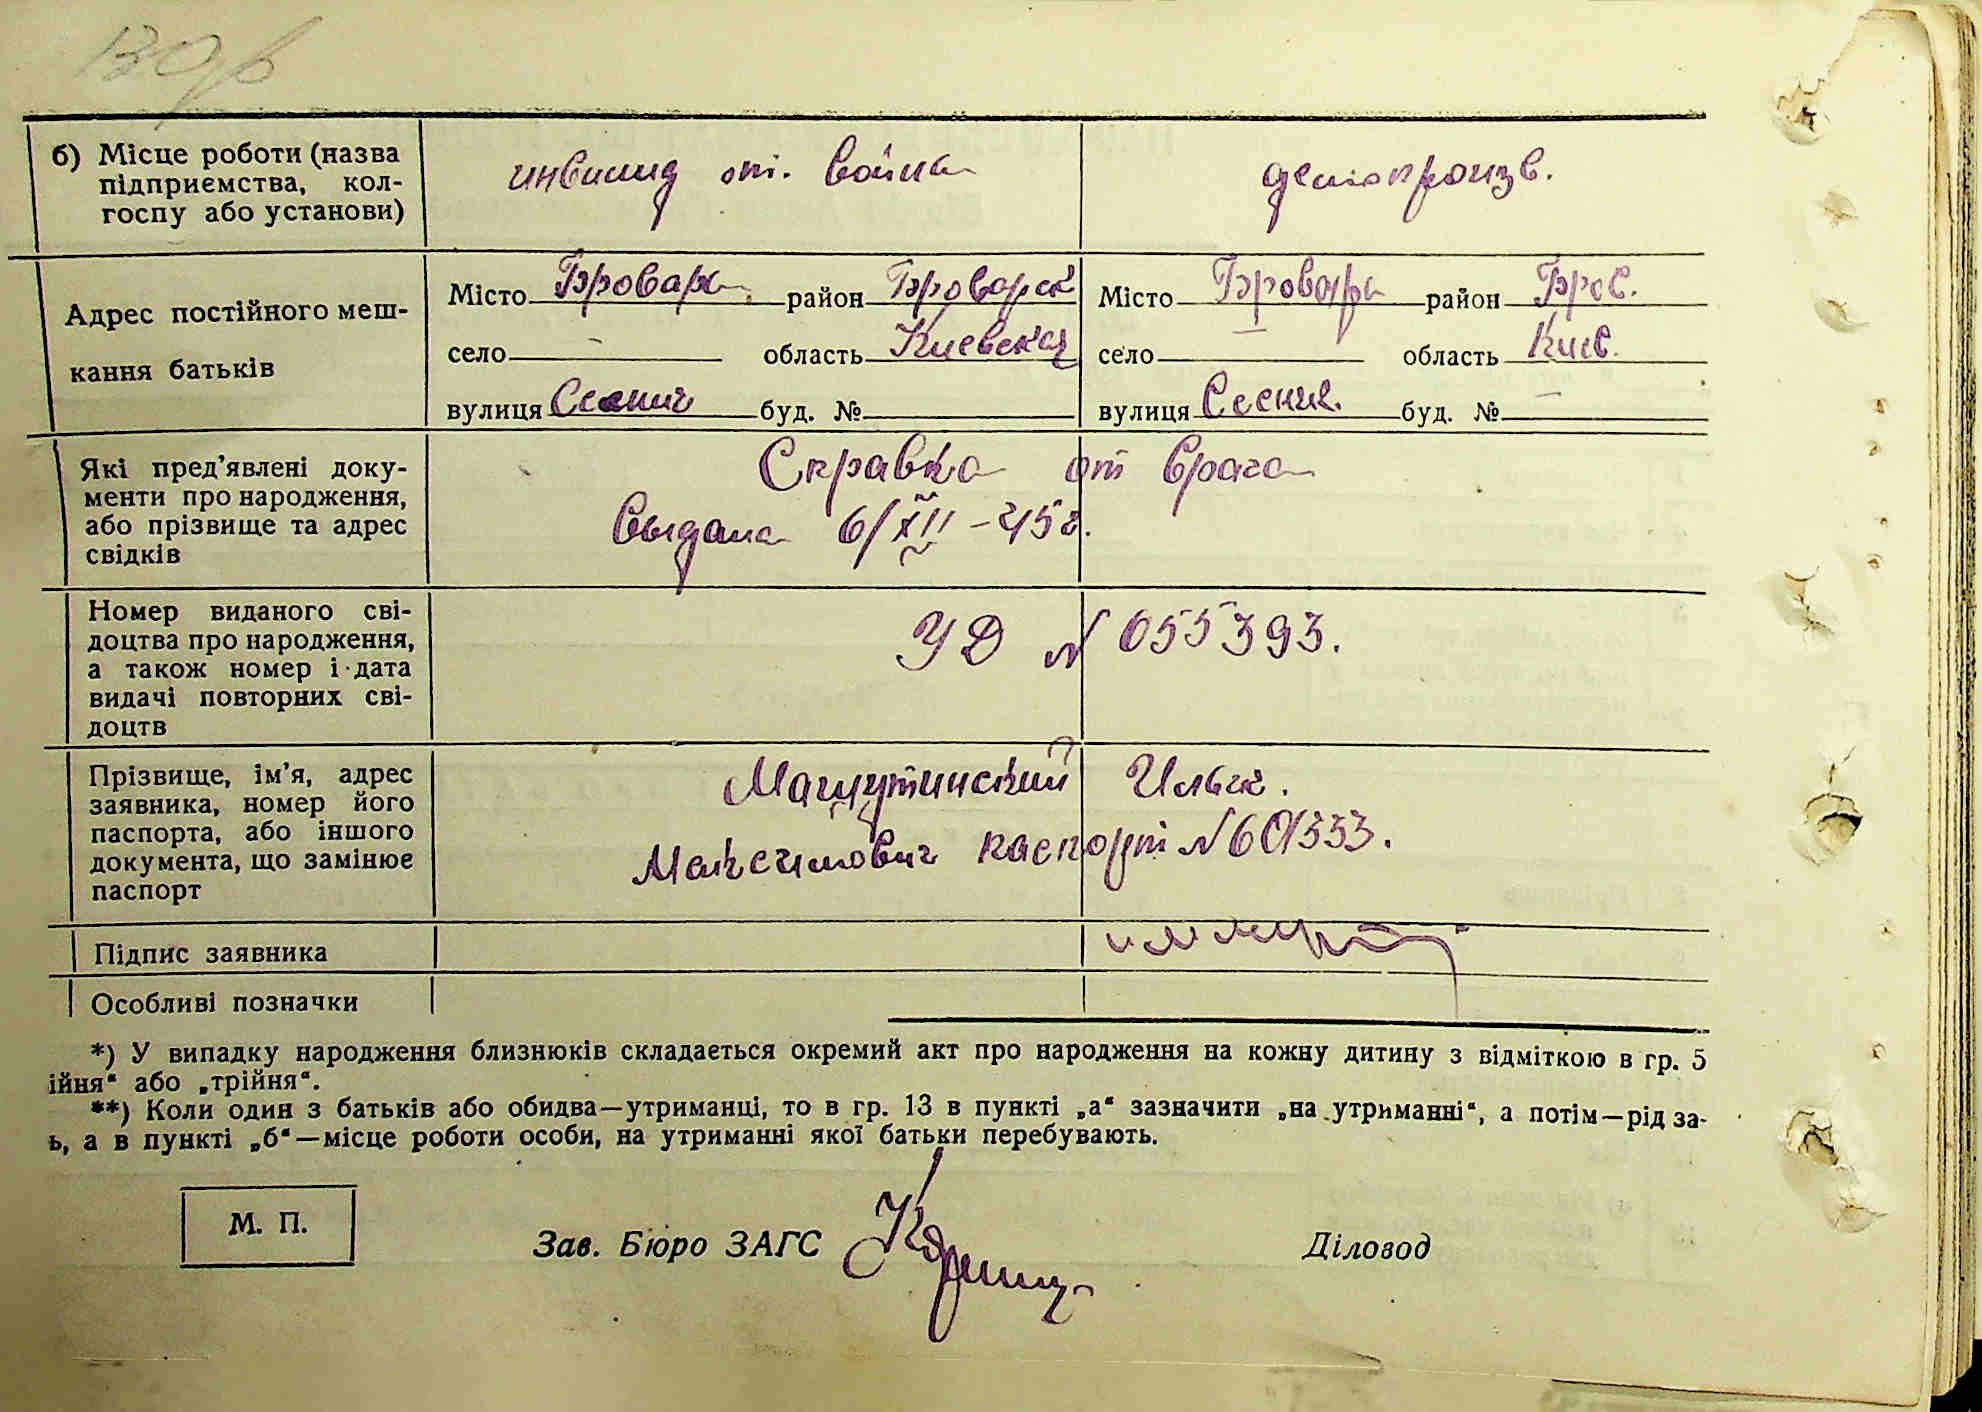 б) Місце роботи (назва
підприємства, кол-
госпу або установи)
инвалид от. война
делопроизв.
Адрес постійного меш-
кання батьків
Місто Бровары район Броварск
село - область Киевская
вулиця буд. №
Місто Бровары район Бров.
село — область Киев.
вулиця буд. № —
Які пред'явлені доку-
менти про народження,
або прізвище та адрес
свідків
Справка от врача
выдана 6/XII-45г.
Номер виданого сві-
доцтва про народження,
а також номер і дата
видачі повторних сві-
доцтв
УД N 055393.
Прізвище, ім'я, адрес
заявника, номер його
паспорта, або іншого
документа, що замінює
паспорт
Машутинский Илья.
Максимович паспорт N 601333.
Підпис заявника
Особливі позначки
*) У випадку народження близнюків складається окремий акт про народження на кожну дитину з відміткою в гр. 5
ійня" або „трійня".
**) Коли один з батьків або обидва—утриманці, то в гр. 13 в пункті „а" зазначити „на утриманні", а потім—рід за-
ь, а в пункті „б"—місце роботи особи, на утриманні якої батьки перебувають.
М. П.
Зав. Бюро ЗАГС
Діловод